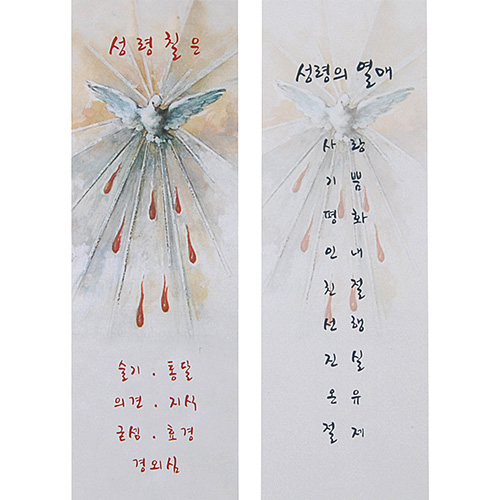 성령칠은
슬기 . 통달
의견 . 지식
굳셈 . 효경
경외심
성령의 열매
사랑
기쁨
평화
인내
친절
선행
진실
온유
절제